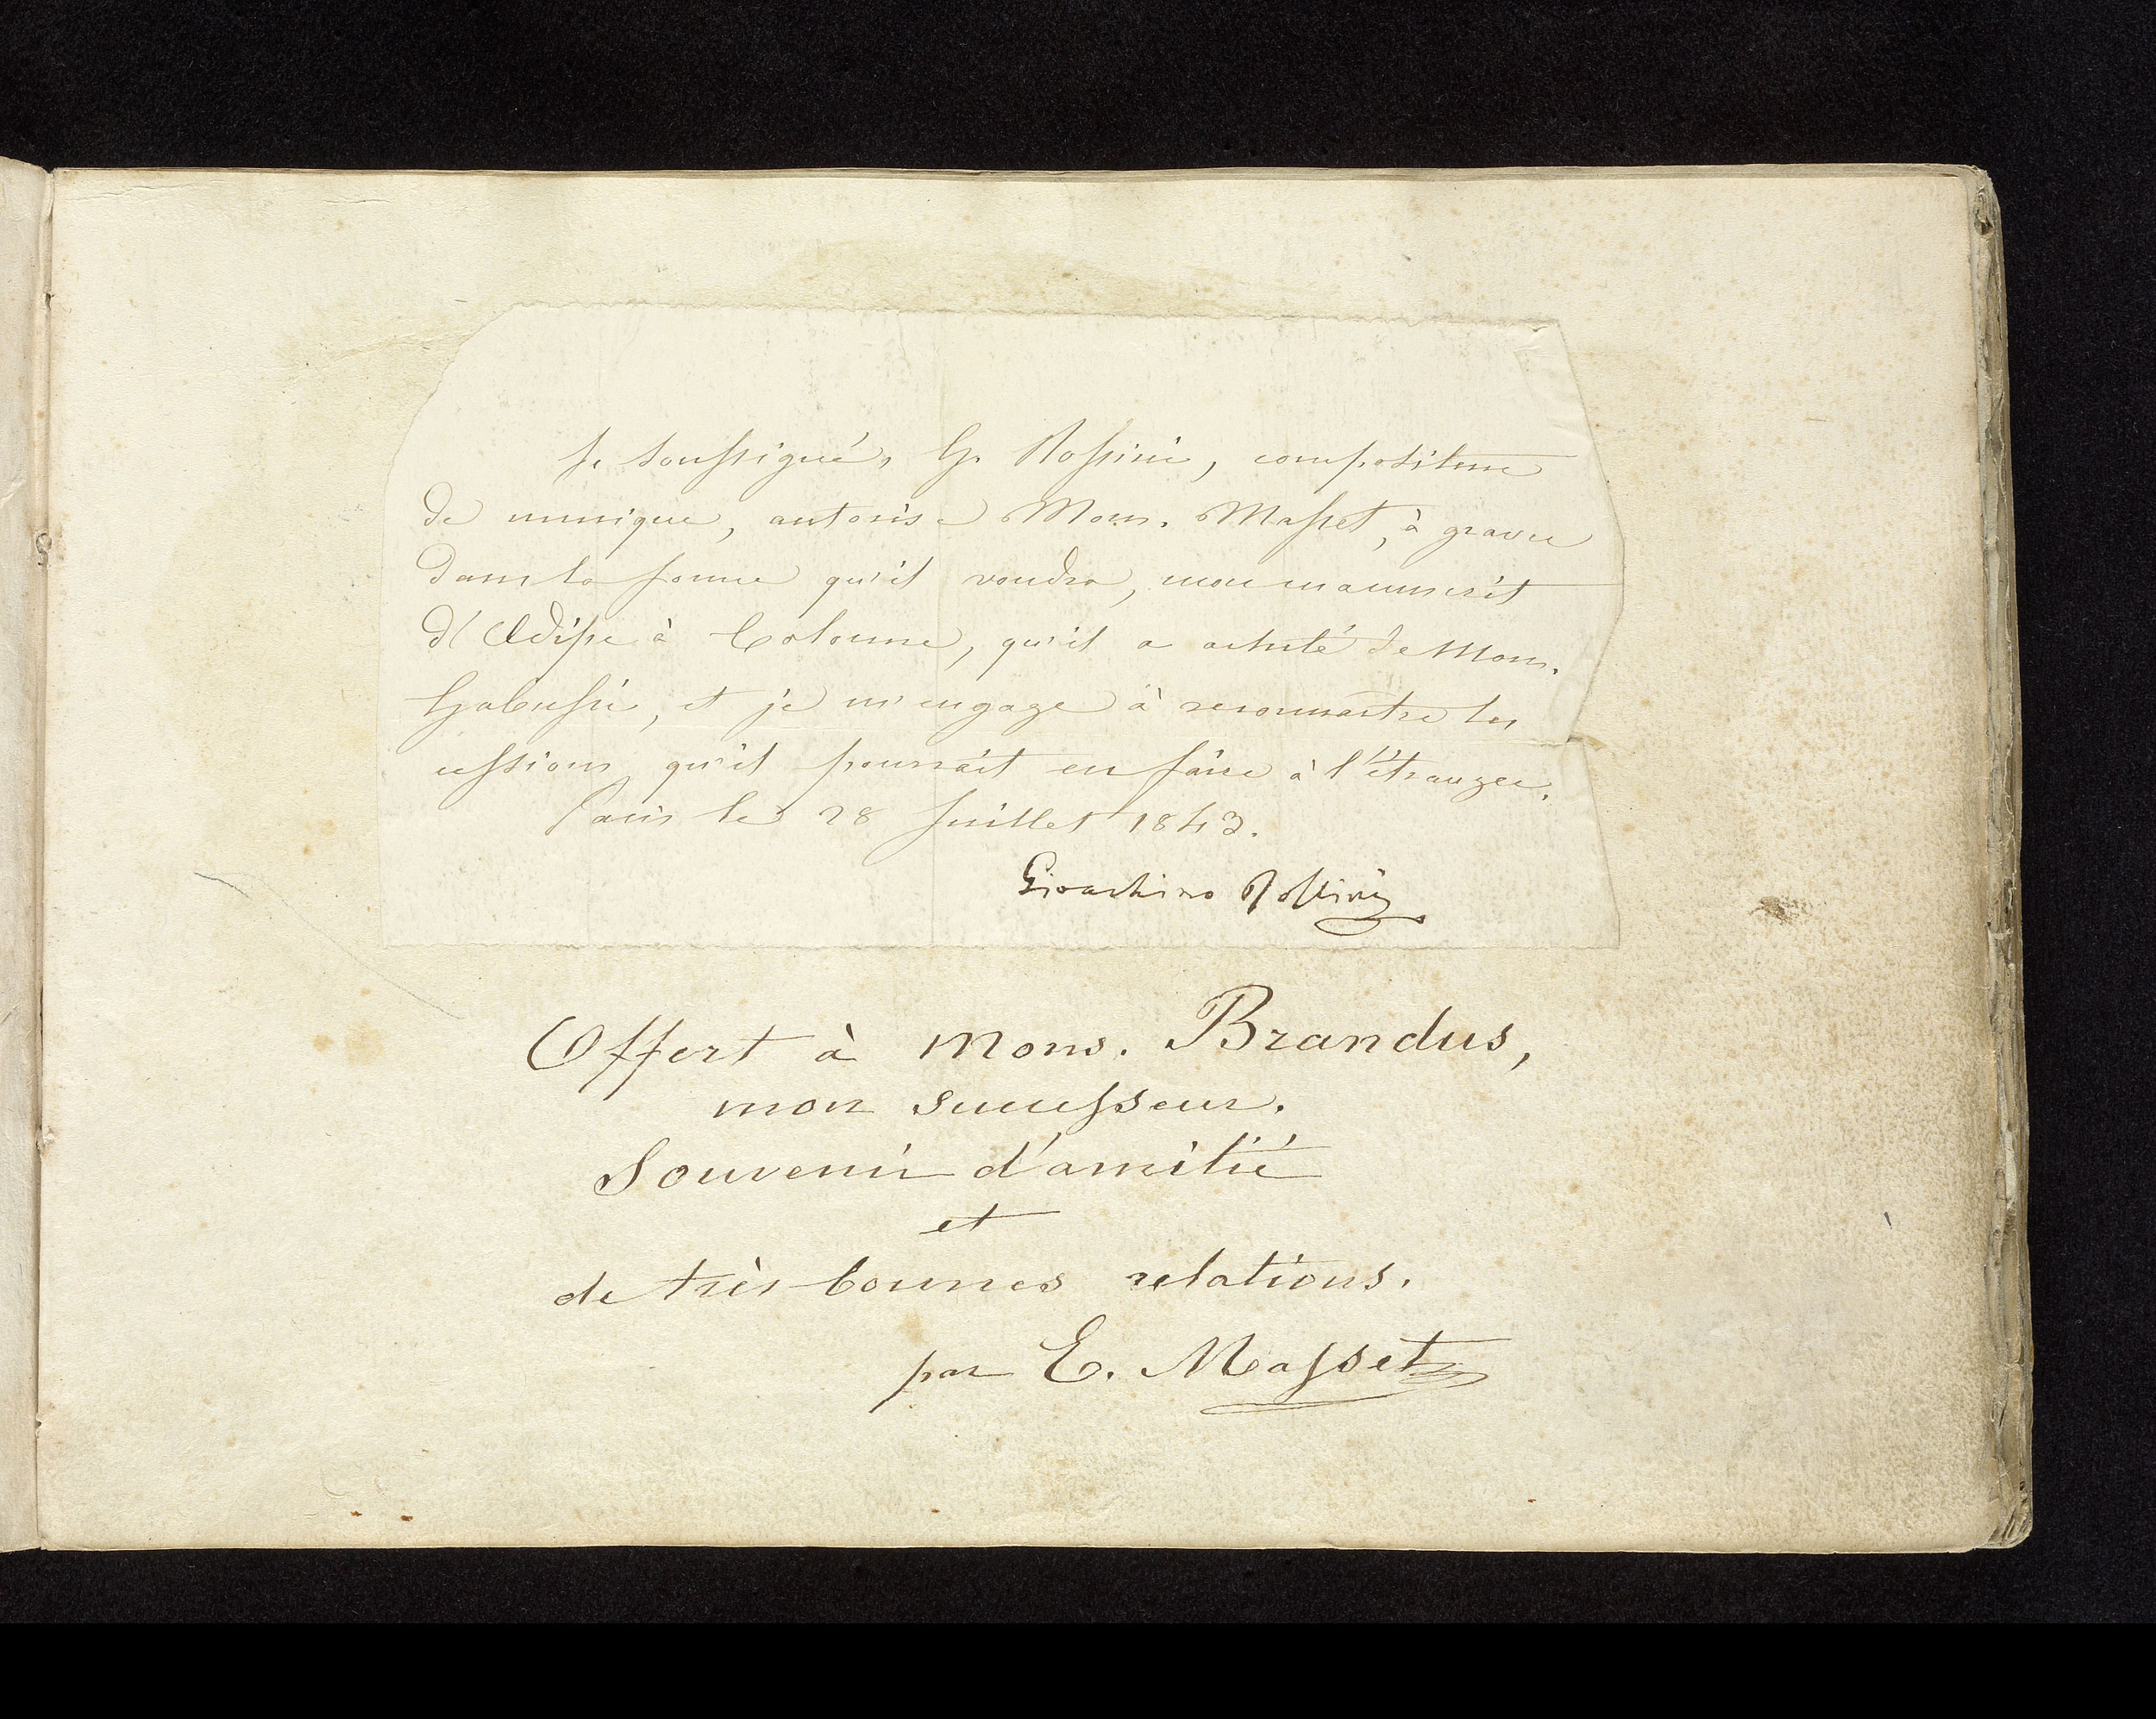 Je soussigné, G. Rossini, compositeur
de musique, autorise Mons. Masset, à graver
dans la forme qu'il voudra, mon manuscrit
d'Œdipe à Colonne, qu'il a acheté de Mons.
Gabussi, et je m'engage à reconnaître les
cessions qu'il pourrait en faire à l'étranger.
Paris le 28 Juillet 1843.
Gioachino Rossini
Offert à Mons. Brandus,
mon successeur.
Souvenir d'amitié
et
de très bonnes relations.
par E. Masset